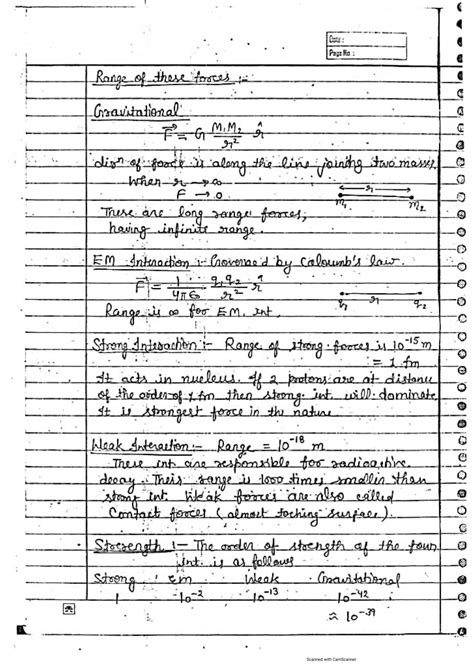 Date :
Page No :
Range of these forces :-
Gravitational
F = G M₁M₂/r² r̂
dirⁿ of force is along the line joining two masses
When r → ∞
F → 0
r
m₁ m₂
These are long range forces,
having infinite range.
EM Interaction :- Governed by Caloumb's law.
F = 1/4πε q₁q₂/r² r̂
q₁ r q₂
Range is ∞ for E.M. int.
Strong Interaction :- Range of strong forces is 10⁻¹⁵ m
= 1 fm
It acts in nucleus. If 2 protons are at distance
of the order of 1 fm then strong int. will dominate
It is strongest force in the nature.
Weak Interaction :- Range = 10⁻¹⁸ m
These int are responsible for radioactive
decay. Their range is 1000 times smaller than
strong int. Weak forces are also called
Contact forces (almost toching surface).
Strength :- The order of strength of the four
int. is as follows
Strong Em Weak Gravitational
1 10⁻² 10⁻¹³ 10⁻⁴²
≈ 10⁻³⁹
Scanned with CamScanner